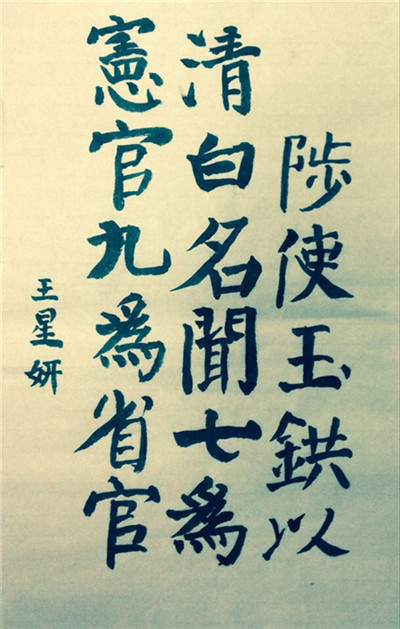 陟使玉鉷以
清白名聞七為
憲官九為省官
王星妍